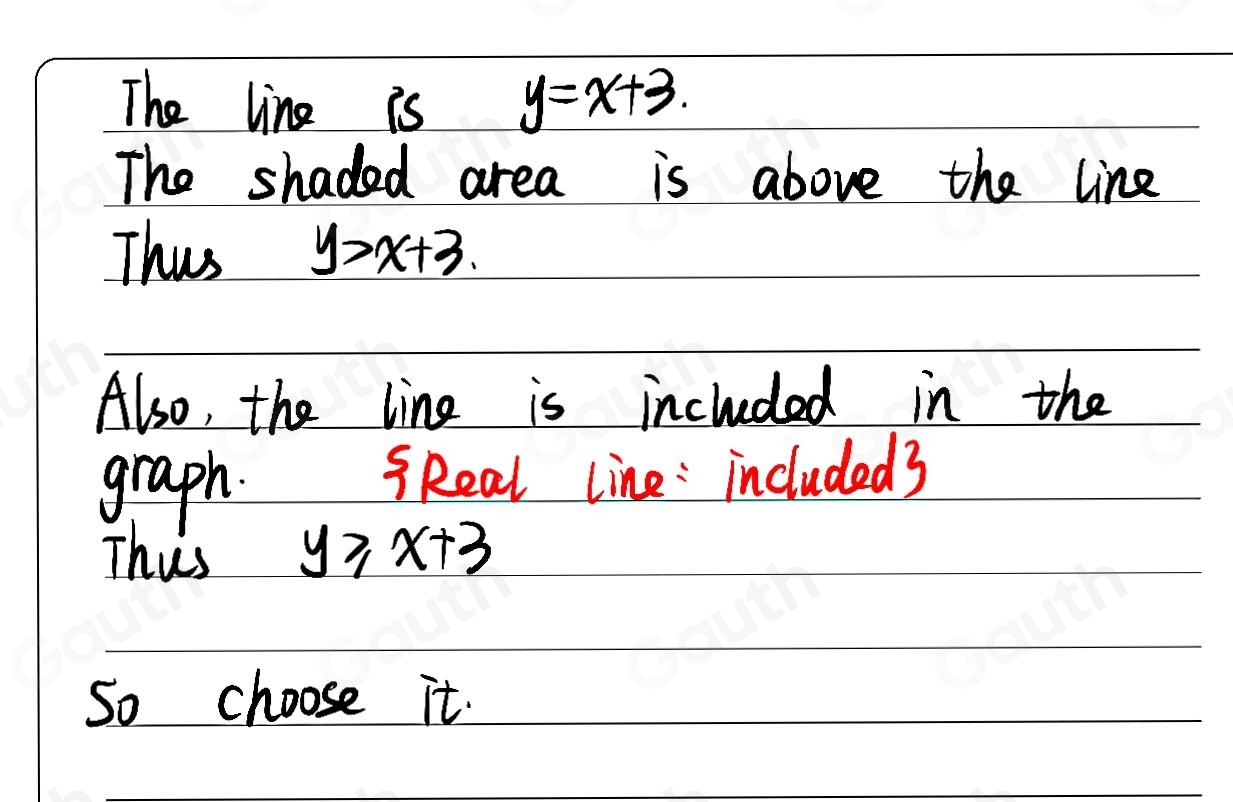 The line is y=x+3.
The shaded area is above the line
Thus y>x+3.
Also, the line is included in the
graph. {Real line: included}
Thus y⩾x+3
So choose it.